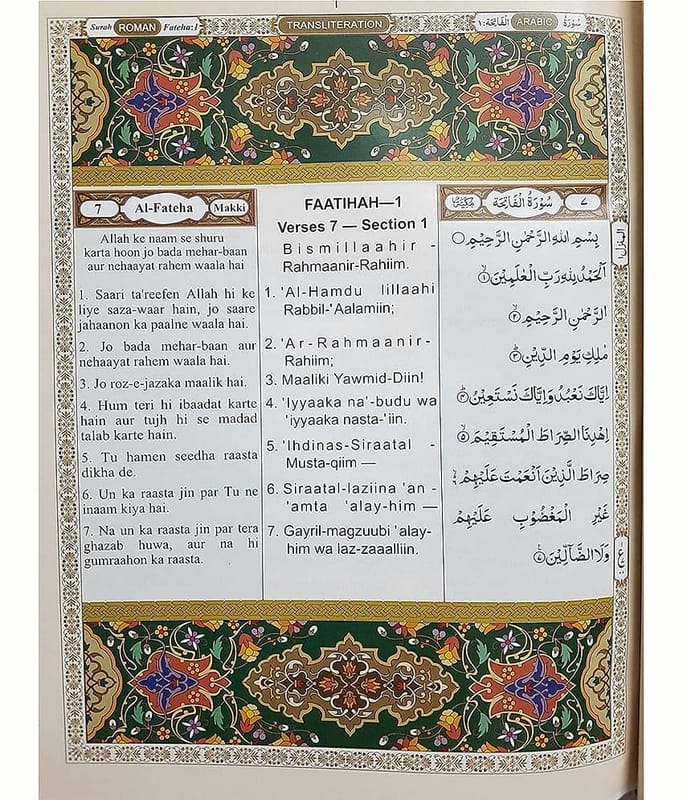 Surah ROMAN Fateha:1
TRANSLITERATION
سُوْرَةُ ARABIC الْفَاتِحَة:۱
7 Al-Fateha Makki
Allah ke naam se shuru
karta hoon jo bada mehar-baan
aur nehaayat rahem waala hai
1. Saari ta'reefen Allah hi ke
liye saza-waar hain, jo saare
jahaanon ka paalne waala hai.
2. Jo bada mehar-baan aur
nehaayat rahem waala hai.
3. Jo roz-e-jazaka maalik hai.
4. Hum teri hi ibaadat karte
hain aur tujh hi se madad
talab karte hain.
5. Tu hamen seedha raasta
dikha de.
6. Un ka raasta jin par Tu ne
inaam kiya hai.
7. Na un ka raasta jin par tera
ghazab huwa, aur na hi
gumraahon ka raasta.
FAATIHAH—1
Verses 7 — Section 1
Bismillaahir -
Rahmaanir-Rahiim.
1. 'Al-Hamdu lillaahi
Rabbil-'Aalamiin;
2. 'Ar-Rahmaanir-
Rahiim;
3. Maaliki Yawmid-Diin!
4. 'Iyyaaka na'-budu wa
'iyyaaka nasta-'iin.
5. 'Ihdinas-Siraatal -
Musta-qiim —
6. Siraatal-laziina 'an -
'amta 'alay-him —
7. Gayril-magzuubi 'alay-
him wa laz-zaaalliin.
٧ سُوْرَةُ الْفَاتِحَةِ مَكِّيَّةٌ
بِسْمِ اللهِ الرَّحْمٰنِ الرَّحِيْمِ
اَلْحَمْدُ لِلّٰهِ رَبِّ الْعٰلَمِيْنَ ۱
الرَّحْمٰنِ الرَّحِيْمِ ۲
مٰلِكِ يَوْمِ الدِّيْنِ ۳
اِيَّاكَ نَعْبُدُ وَاِيَّاكَ نَسْتَعِيْنُ ۴
اِهْدِنَا الصِّرَاطَ الْمُسْتَقِيْمَ ۵
صِرَاطَ الَّذِيْنَ اَنْعَمْتَ عَلَيْهِمْ ۶
غَيْرِ الْمَغْضُوْبِ عَلَيْهِمْ
وَلَا الضَّآلِّيْنَ ۷
المنزل ۱
ع